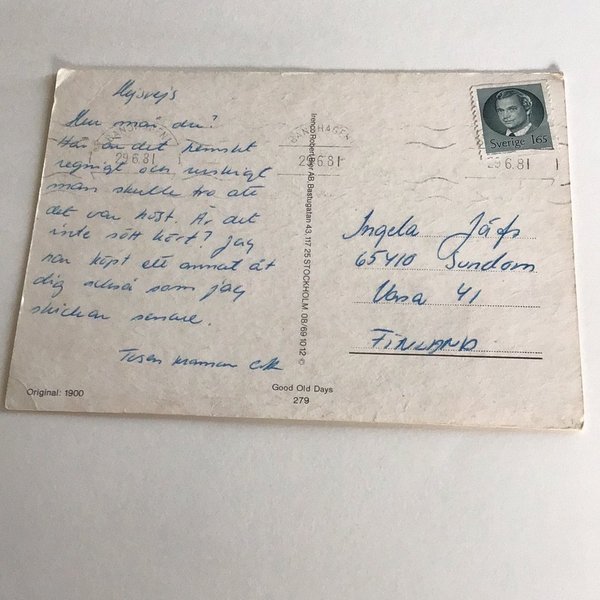 Hejsvejs
Hur mår du?
Här är det hemskt
regnigt och ruskigt
man skulle tro att
det var höst. Är det
inte sött kort? Jag
har köpt ett annat åt
dig också som jag
skickar senare.
Tusen kramar
Original: 1900
Good Old Days
279
Bastugatan 43, 117 25 STOCKHOLM. 08/69 10 12 ©
29.6.81
29.6.81
29.6.81
Sverige 165
Ingela
65410 Sundom
Vasa 41
FINLAND